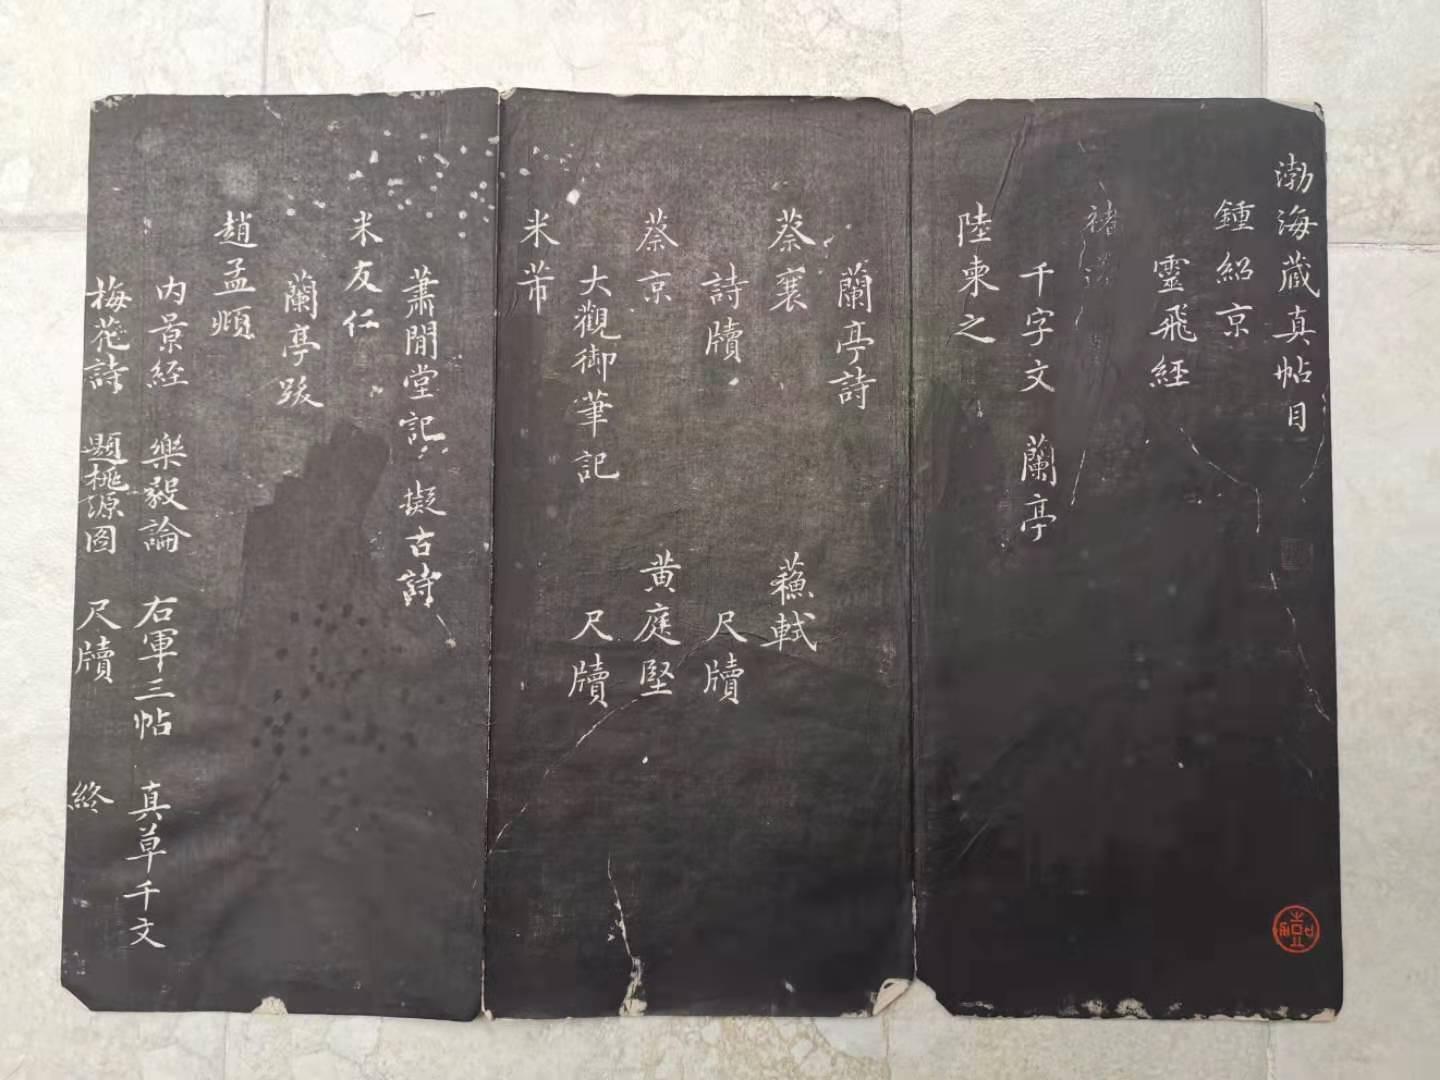 渤海藏真帖目
鍾紹京
靈飛經
褚
千字文 蘭亭
陸柬之
蘭亭詩
蔡襄 蘓軾
詩牘 尺牘
蔡京 黄庭堅
大觀御筆記 尺牘
米芾
蕭閒堂記 擬古詩
米友仁
蘭亭跋
趙孟頫
内景經 樂毅論 右軍三帖 真草千文
梅花詩 題桃源图 尺牘 終